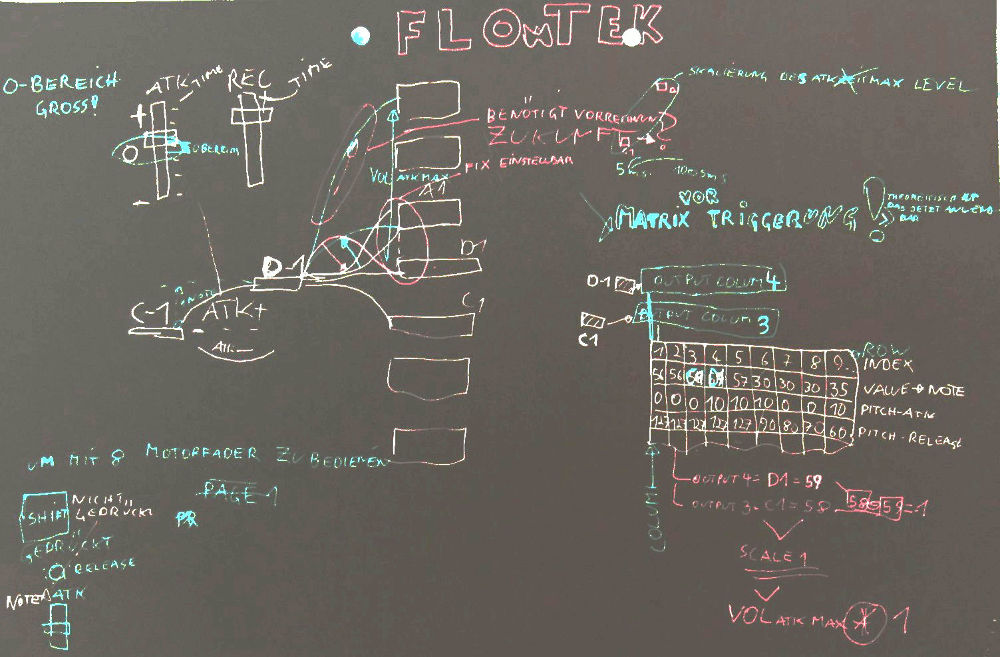 FLOWTEK
O-BEREICH
GROSS!
ATK TIME
REC TIME
+
O
-
SKALIERUNG DES ATK MAX LEVEL
BENÖTIGT VORRECHNUNG
ZUKUNFT
C1
FIX EINSTELLBAR
VOL ATK MAX
A1
D1
C1
D-1
C-1
NOTE
ATK+
ATK-
5ms
VOR
MATRIX TRIGGERUNG
THEORETISCH AUF
DAS JETZT ANWEND-
BAR
D-1 OUTPUT COLUM 4
C1 OUTPUT COLUM 3
1 2 3 4 5 6 7 8 9 ROW INDEX
56 56 58 59 57 30 30 30 35 VALUE → NOTE
0 0 0 10 10 10 0 0 10 PITCH-ATK
127 127 127 127 127 90 80 70 60 PITCH-RELEASE
COLUMN
OUTPUT 4 = D1 = 59
OUTPUT 3 = C1 = 58
58 59 = 1
SCALE 1
VOL ATK MAX * 1
UM MIT 8 MOTORFADER ZU BEDIENEN
PAGE 1
PR
SHIFT
NICHT
GEDRÜCKT
GEDRÜCKT
RELEASE
NOTE ATK